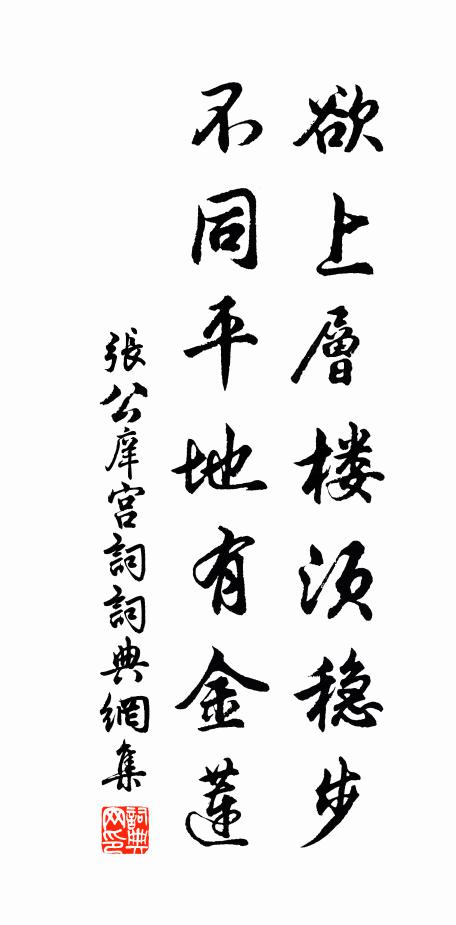 欲上層楼須穏步
不同平地有金蓮
張公庠宮詞詞典網集
詞典网印